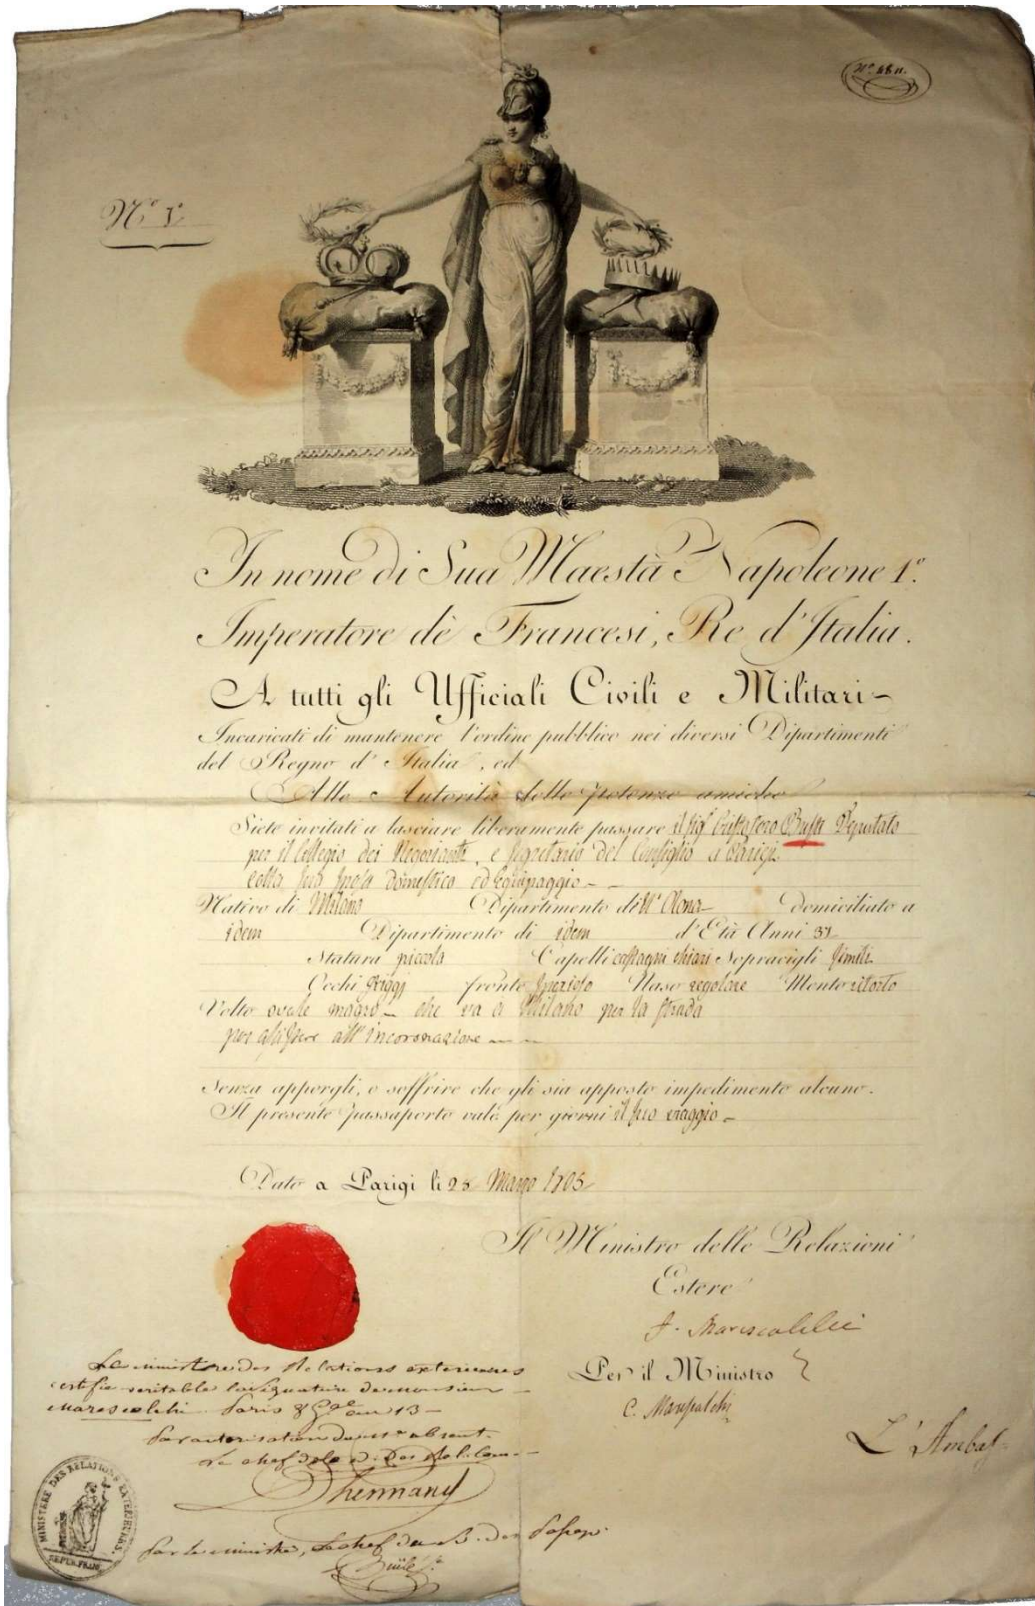 Nº 1º
In nome di Sua Maestà Napoleone 1º.
Imperatore dè Francesi, Re d'Italia.
A tutti gli Ufficiali Civili e Militari-
Incaricati di mantenere l'ordine pubblico nei diversi Dipartimenti
del Regno d'Italia, ed
Alle Autorità delle potenze amiche
Siete invitati a lasciare liberamente passare il Sigr Cristoforo Deputato
per il Collegio dei Negozianti, e Segretario del Consiglio a Parigi
colla sua sposa domestico ed Equipaggio - -
Nativo di Milano Dipartimento di Olona Domiciliato a
idem Dipartimento di idem d'Età Anni
Statura piccola Capelli castagni chiari Sopracigli simili
Occhi griggi fronte spazioso Naso regolare Mento ritorto
Volto ovale magro - che va a Milano per la strada
per assistere all'incoronazione
Senza apporgli, o soffrire che gli sia apposto impedimento alcuno.
Il presente passaporto vale per giorni il suo viaggio -
Dato a Parigi li 28 Marzo 1805
Il Ministro delle Relazioni
Estere
F. Marescalchi
Per il Ministro
C. Marescalchi
L'Ambas
Le ministre des Relations exterieures
certifie veritable la signature de monsieur
Marescalchi Paris 8 an 13 -
Par autorisation du absent
Le chef de la
Par le ministre, Le chef du B. des
MINISTERE DES RELATIONS EXTERIEURES.
REPUB. FRAN.